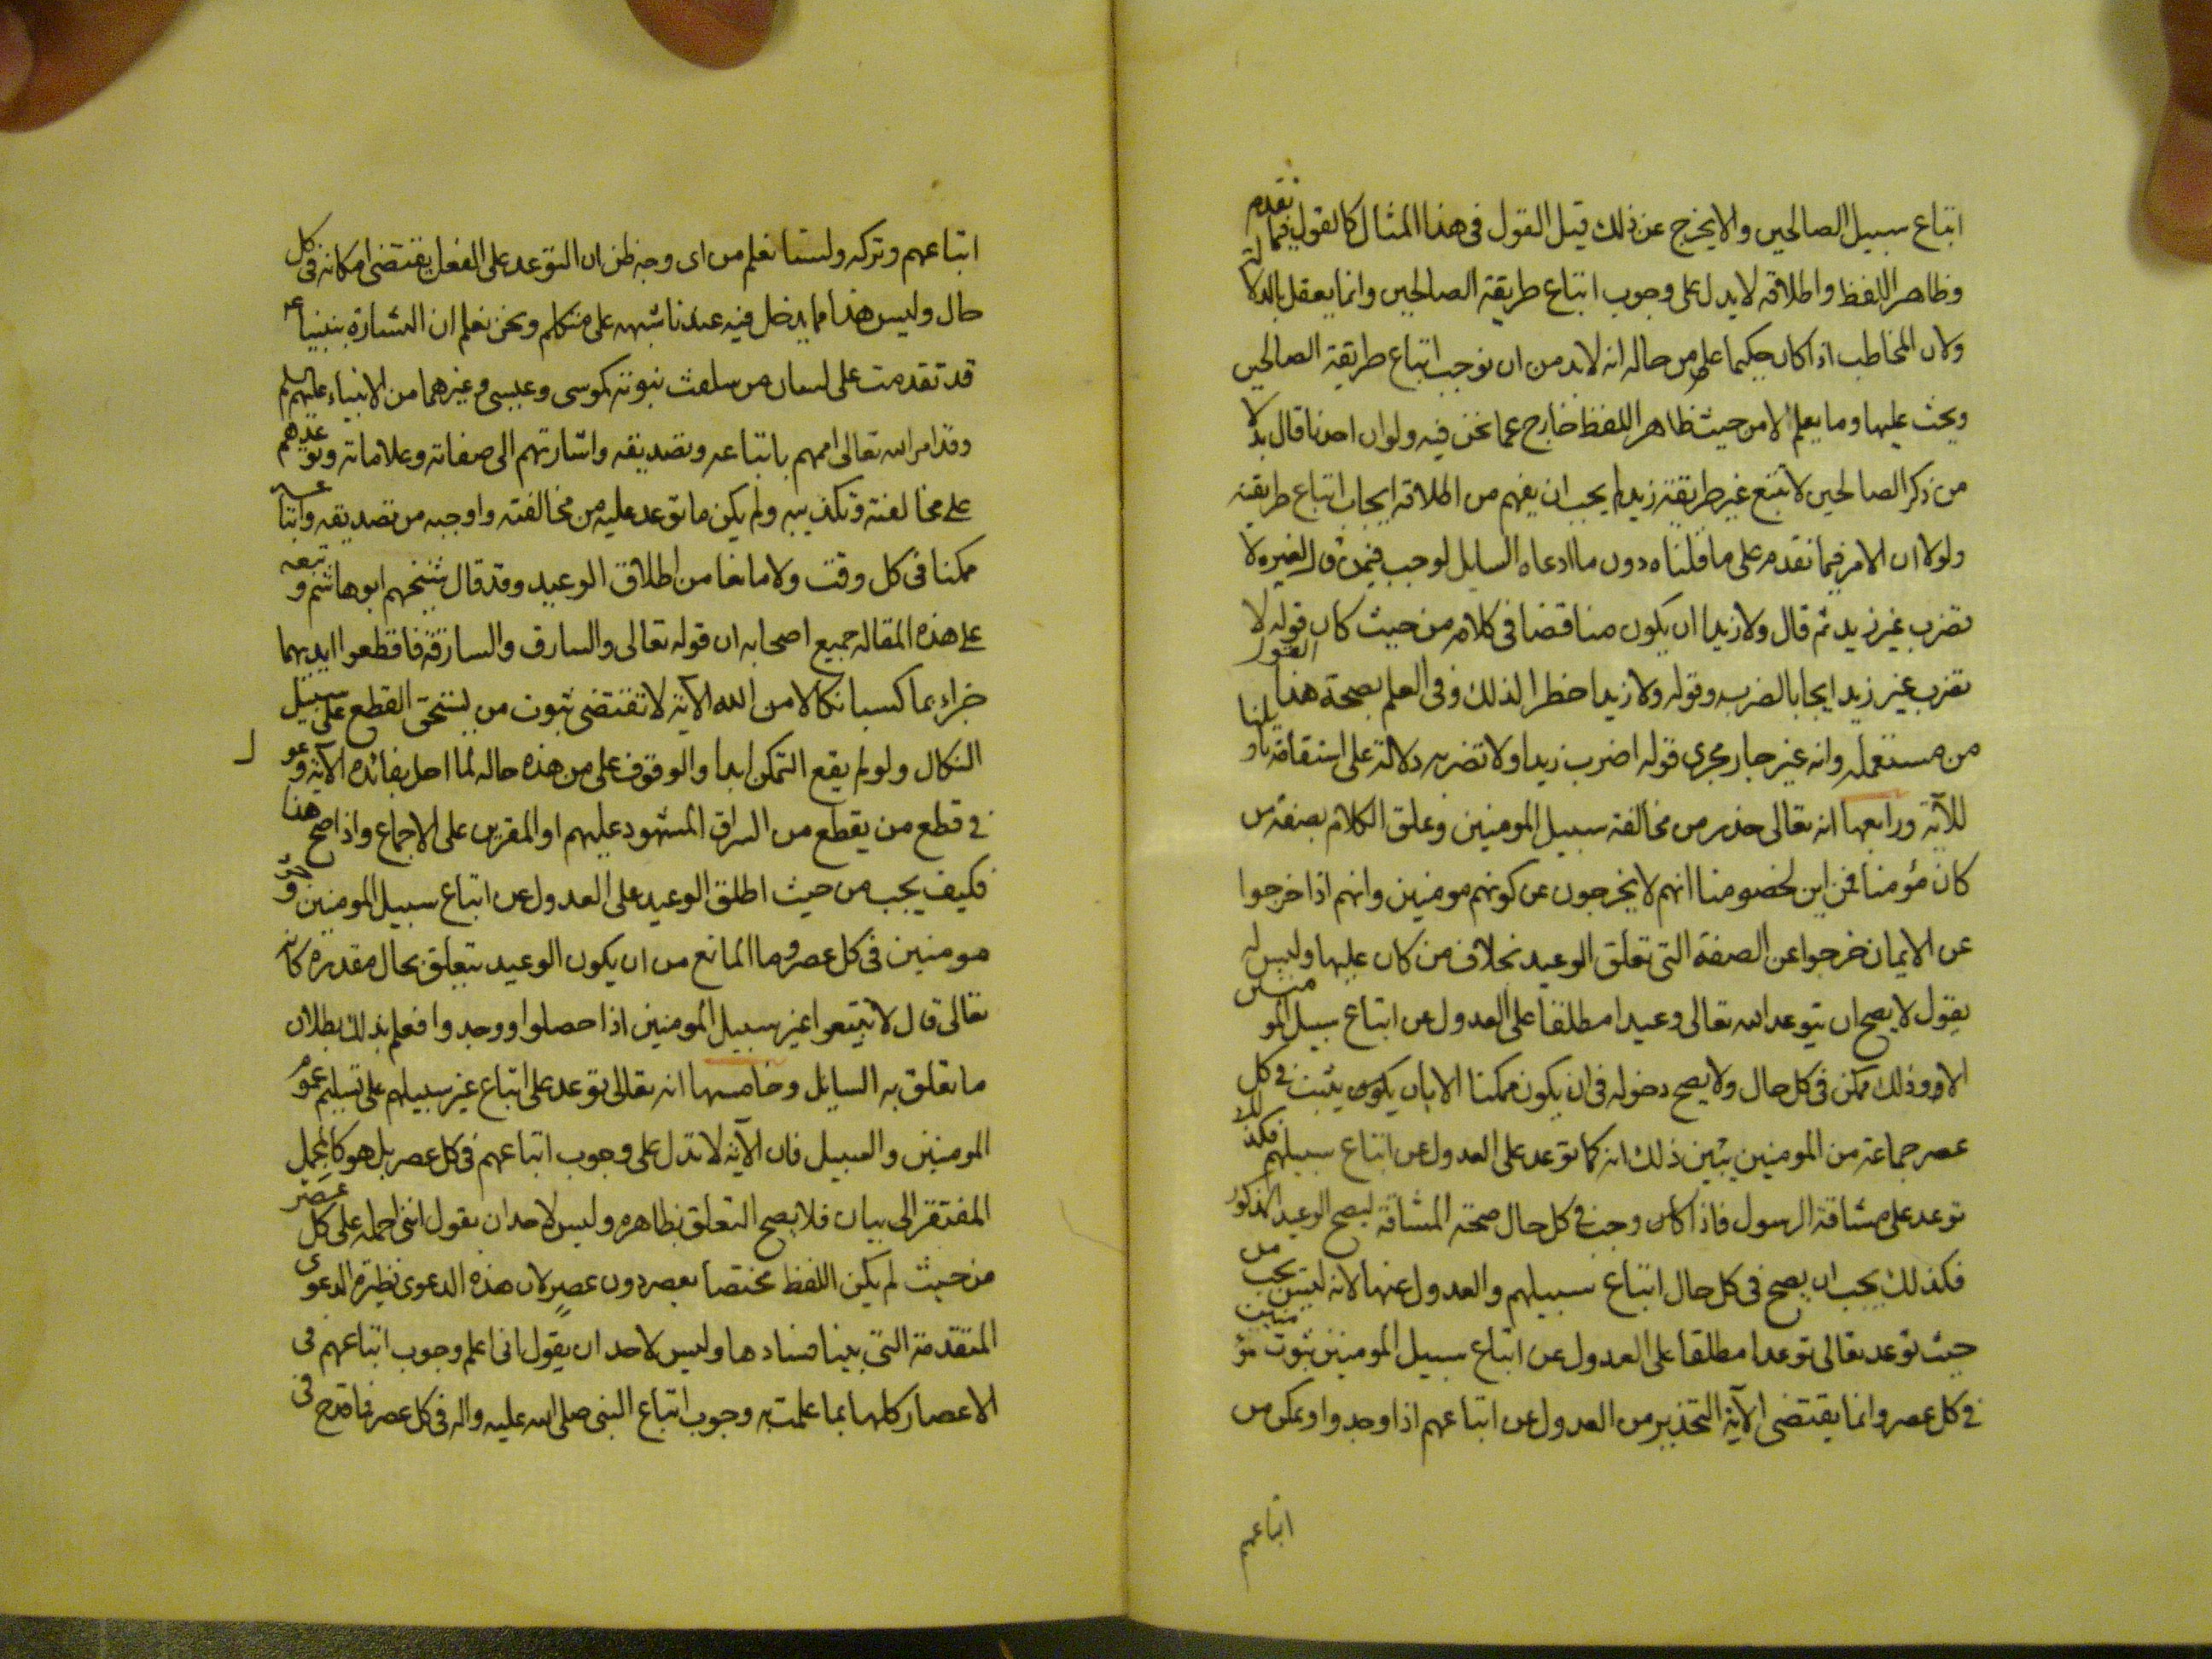 اتباع سبيل الصالحين والا يخرج عن ذلك قيل القول في هذا المثال كالقول فيما تقدم
وظاهر اللفظ واطلاقه لا يدل على وجوب اتباع طريقة الصالحين وانما يعقل بالدلالة
ولان المخاطب اذا كان حكيما علم من حاله انه لابد من ان توجب اتباع طريقة الصالحين
ويحث عليها وما يعلم لا من حيث ظاهر اللفظ خارج عما نحن فيه ولو ان احدنا قال بدلا
من ذكر الصالحين لا تتبع غير طريقة زيد لم يجب ان يفهم من اطلاقه ايجاب اتباع طريقته
ولولا ان الامر فيما تقدم على ما قلناه دون ما ادعاه السايل لوجب فيمن قال لغيره لا
تضرب غير زيد ثم قال ولا زيدا ان يكون مناقضا في كلامه من حيث كان قوله لا
تضرب غير زيد ايجابا لضربه وقوله ولا زيدا حظرا لذلك وفي العلم بصحة هذا القول
من مستعمله وانه غير جار مجرى قوله اضرب زيدا ولا تضربه دلالة على استقامة تاويلنا
للآية ورابعها انه تعالى حذر من مخالفة سبيل المومنين وعلق الكلام بصفة من
كان مؤمنا فمن اين لخصومنا انهم لا يخرجون عن كونهم مومنين وانهم اذا خرجوا
عن الايمان خرجوا عن الصفة التي تعلق الوعيد بخلاف من كان عليها وليس له
يقول لا يصح ان يتوعد الله تعالى وعيدا مطلقا على العدول عن اتباع سبيل المومنين
الا وذلك ممكن في كل حال ولا يصح دخوله في ان يكون ممكنا الا بان يكون يثبت في كل
عصر جماعة من المومنين يبين ذلك انه كما توعد على العدول عن اتباع سبيلهم فكذلك
توعد على مشاقة الرسول فاذا كان وجب في كل حال صحة المشاقة ليصح الوعيد المذكور
فكذلك يجب ان يصح في كل حال اتباع سبيلهم والعدول عنها لانه ليس يجب من
حيث توعد تعالى توعدا مطلقا على العدول عن اتباع سبيل المومنين ثبوت مؤمنين
في كل عصر وانما يقتضى الآية التحذير من العدول عن اتباعهم اذا وجدوا وتمكن من
اتباعهم
اتباعهم وتركه ولسنا نعلم من اى وجه ظن ان التوعد على الفعل يقتضى امكانه في كل
حال وليس هذا مما يدخل فيه عندنا شبهه على متكلم ونحن نعلم ان البشارة بنبينا ع
قد تقدمت على لسان من سلفت نبوته كموسى وعيسى وغيرهما من الانبياء عليهم السلم
وقد امر الله تعالى اممهم باتباعه وتصديقه واشارتهم الى صفاته وعلاماته وتوعدهم
على مخالفته وتكذيبه ولم يكن ما توعد عليه من مخالفته واوجبه من تصديقه واتباعه
ممكنا في كل وقت ولا مانعا من اطلاق الوعيد وقد قال شيخهم ابو هاشم وتبعه
على هذه المقاله جميع اصحابه ان قوله تعالى والسارق والسارقة فاقطعوا ايديهما
جزاء بما كسبا نكالا من الله الآية لا تقتضى ثبوت من يستحق القطع على سبيل
النكال ولو لم يقع التمكن ابدا والوقوف على من هذه حاله لما اخل بفائدة الآية وعول
في قطع من يقطع من السراق المشهود عليهم او المقرين على الاجماع واذا صح هذا
فكيف يجب من حيث اطلق الوعيد على العدول عن اتباع سبيل المومنين وجود
مومنين في كل عصر وما المانع من ان يكون الوعيد يتعلق بحال مقدرة كانه
تعالى قال لا تتبعوا غير سبيل المومنين اذا حصلوا ووجدوا فعلم بذلك بطلان
ما تعلق به السايل وخامسها انه تعالى توعد على اتباع غير سبيلهم على تسليم عموم
المومنين والسبيل فان الآية لا تدل على وجوب اتباعهم في كل عصر بل هو كالمجمل
المفتقر الى بيان فلا يصح التعلق بظاهره وليس لاحد ان يقول اننى احمله على كل عصر
من حيث لم يكن اللفظ مختصا بعصر دون عصر لان هذه الدعوى نظيرة الدعوى
المتقدمة التي بينا فسادها وليس لاحد ان يقول انى اعلم وجوب اتباعهم في
الاعصار كلها بما علمت به وجوب اتباع النبى صلى الله عليه واله في كل عصر فما قدح في